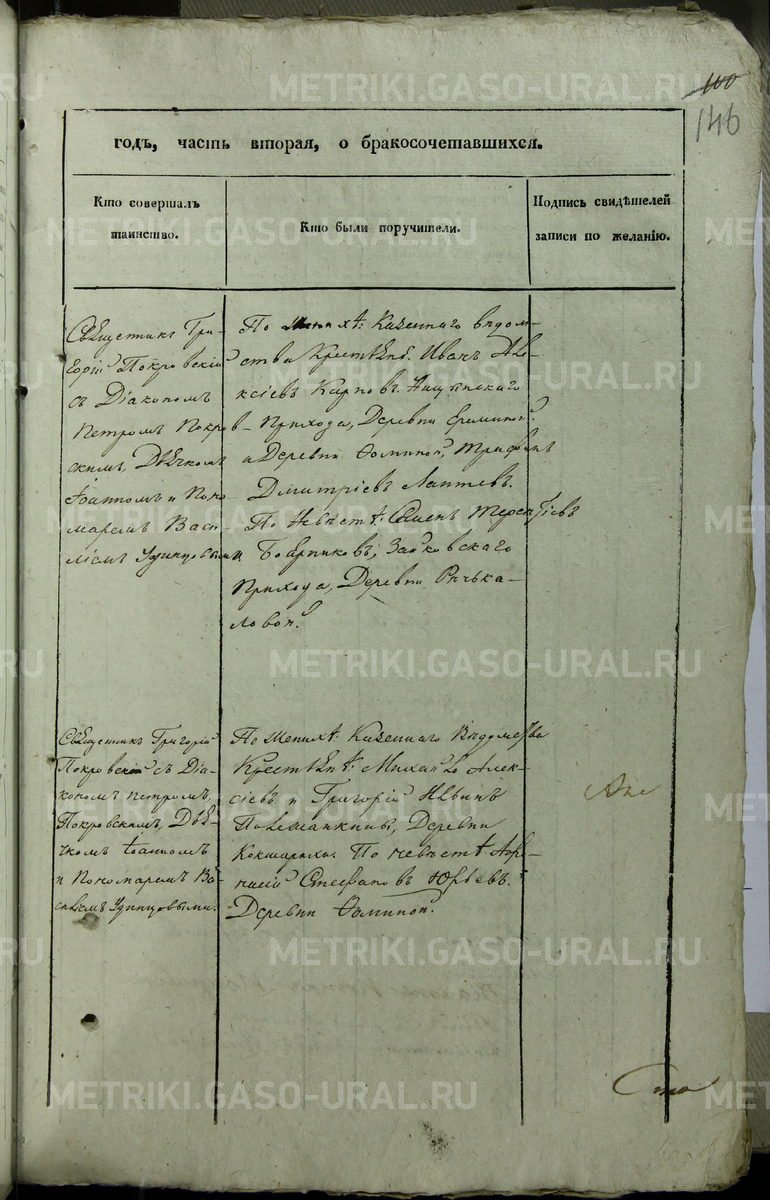 100
146
годъ, часть вторая, о бракосочетавшихся.
Кто совершалъ
таинство.
Кто были поручители.
Подпись свидѣтелей
записи по желанію.
Священникъ Гри-
горій Покровскій
съ Діакономъ
Петромъ Покров-
скимъ, Дьячкомъ
Іоанномъ и Поно-
маремъ Васи-
ліемъ Удинцовыми.
По жених: Казеннаго вѣдом-
ства Крестьян. Иванъ Але-
ксѣевъ Карповъ
Прихода, Деревни Ереминой.
и Деревни Фоминой, Трифонъ
Дмитріевъ Лаптевъ.
По Невѣстѣ: Семенъ Терентіевъ
Бобрниковъ, Зайковскаго
Прихода, Деревни Речька-
ловой.
Священникъ Григорій
Покровскій съ Діа-
кономъ Петромъ,
Покровскимъ, Дья-
чкомъ Іоанномъ
и Пономаремъ Ва-
силіемъ Удинцовыми.
По женихѣ: Казеннаго Вѣдомства
Крестьян: Михайло Алек-
сѣевъ и Григорій
Деревни
Кокшарихи. По невѣстѣ
Стефановъ Юрьевъ.
Деревни Фоминой.
Сто
METRIKI.GASO-URAL.RU